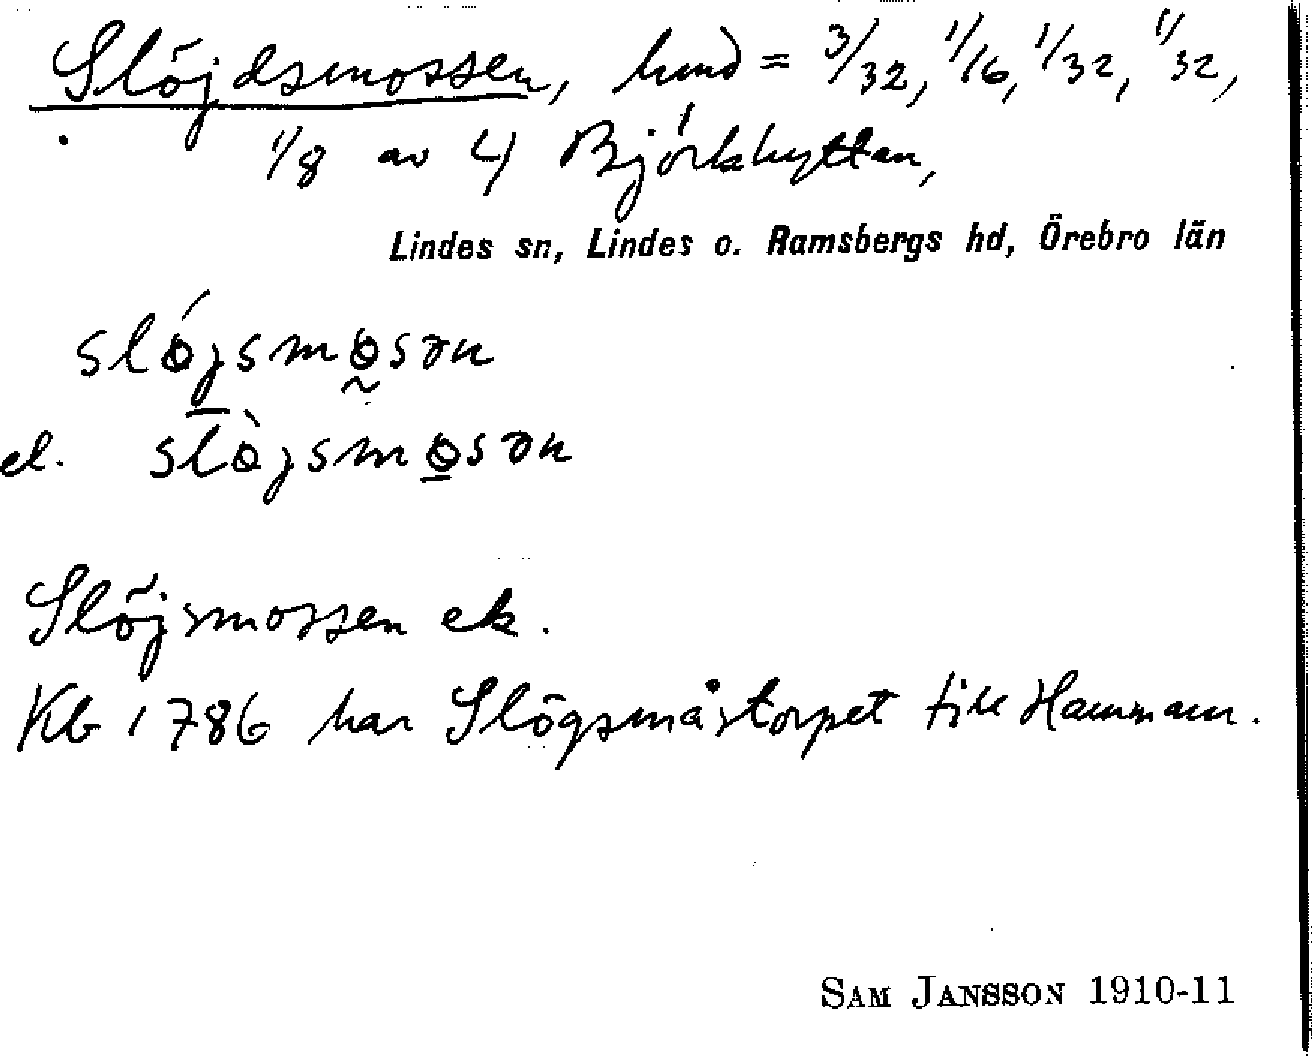 Slöjdsmossen, hmd = 3/32, 1/16, 1/32, 1/32,
1/8 av 4 Björkhyttan,
Lindes sn, Lindes o. Ramsbergs hd, Örebro län
slǿjsmøsən
el. slø̀jsmøsən
Slöjsmossen ek.
Kb 1786 har Slögsmåstorpet till Hammarn.
SAM JANSSON 1910-11